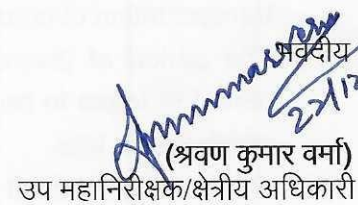 भवदीय
22/12
(श्रवण कुमार वर्मा)
उप महानिरीक्षक/क्षेत्रीय अधिकारी